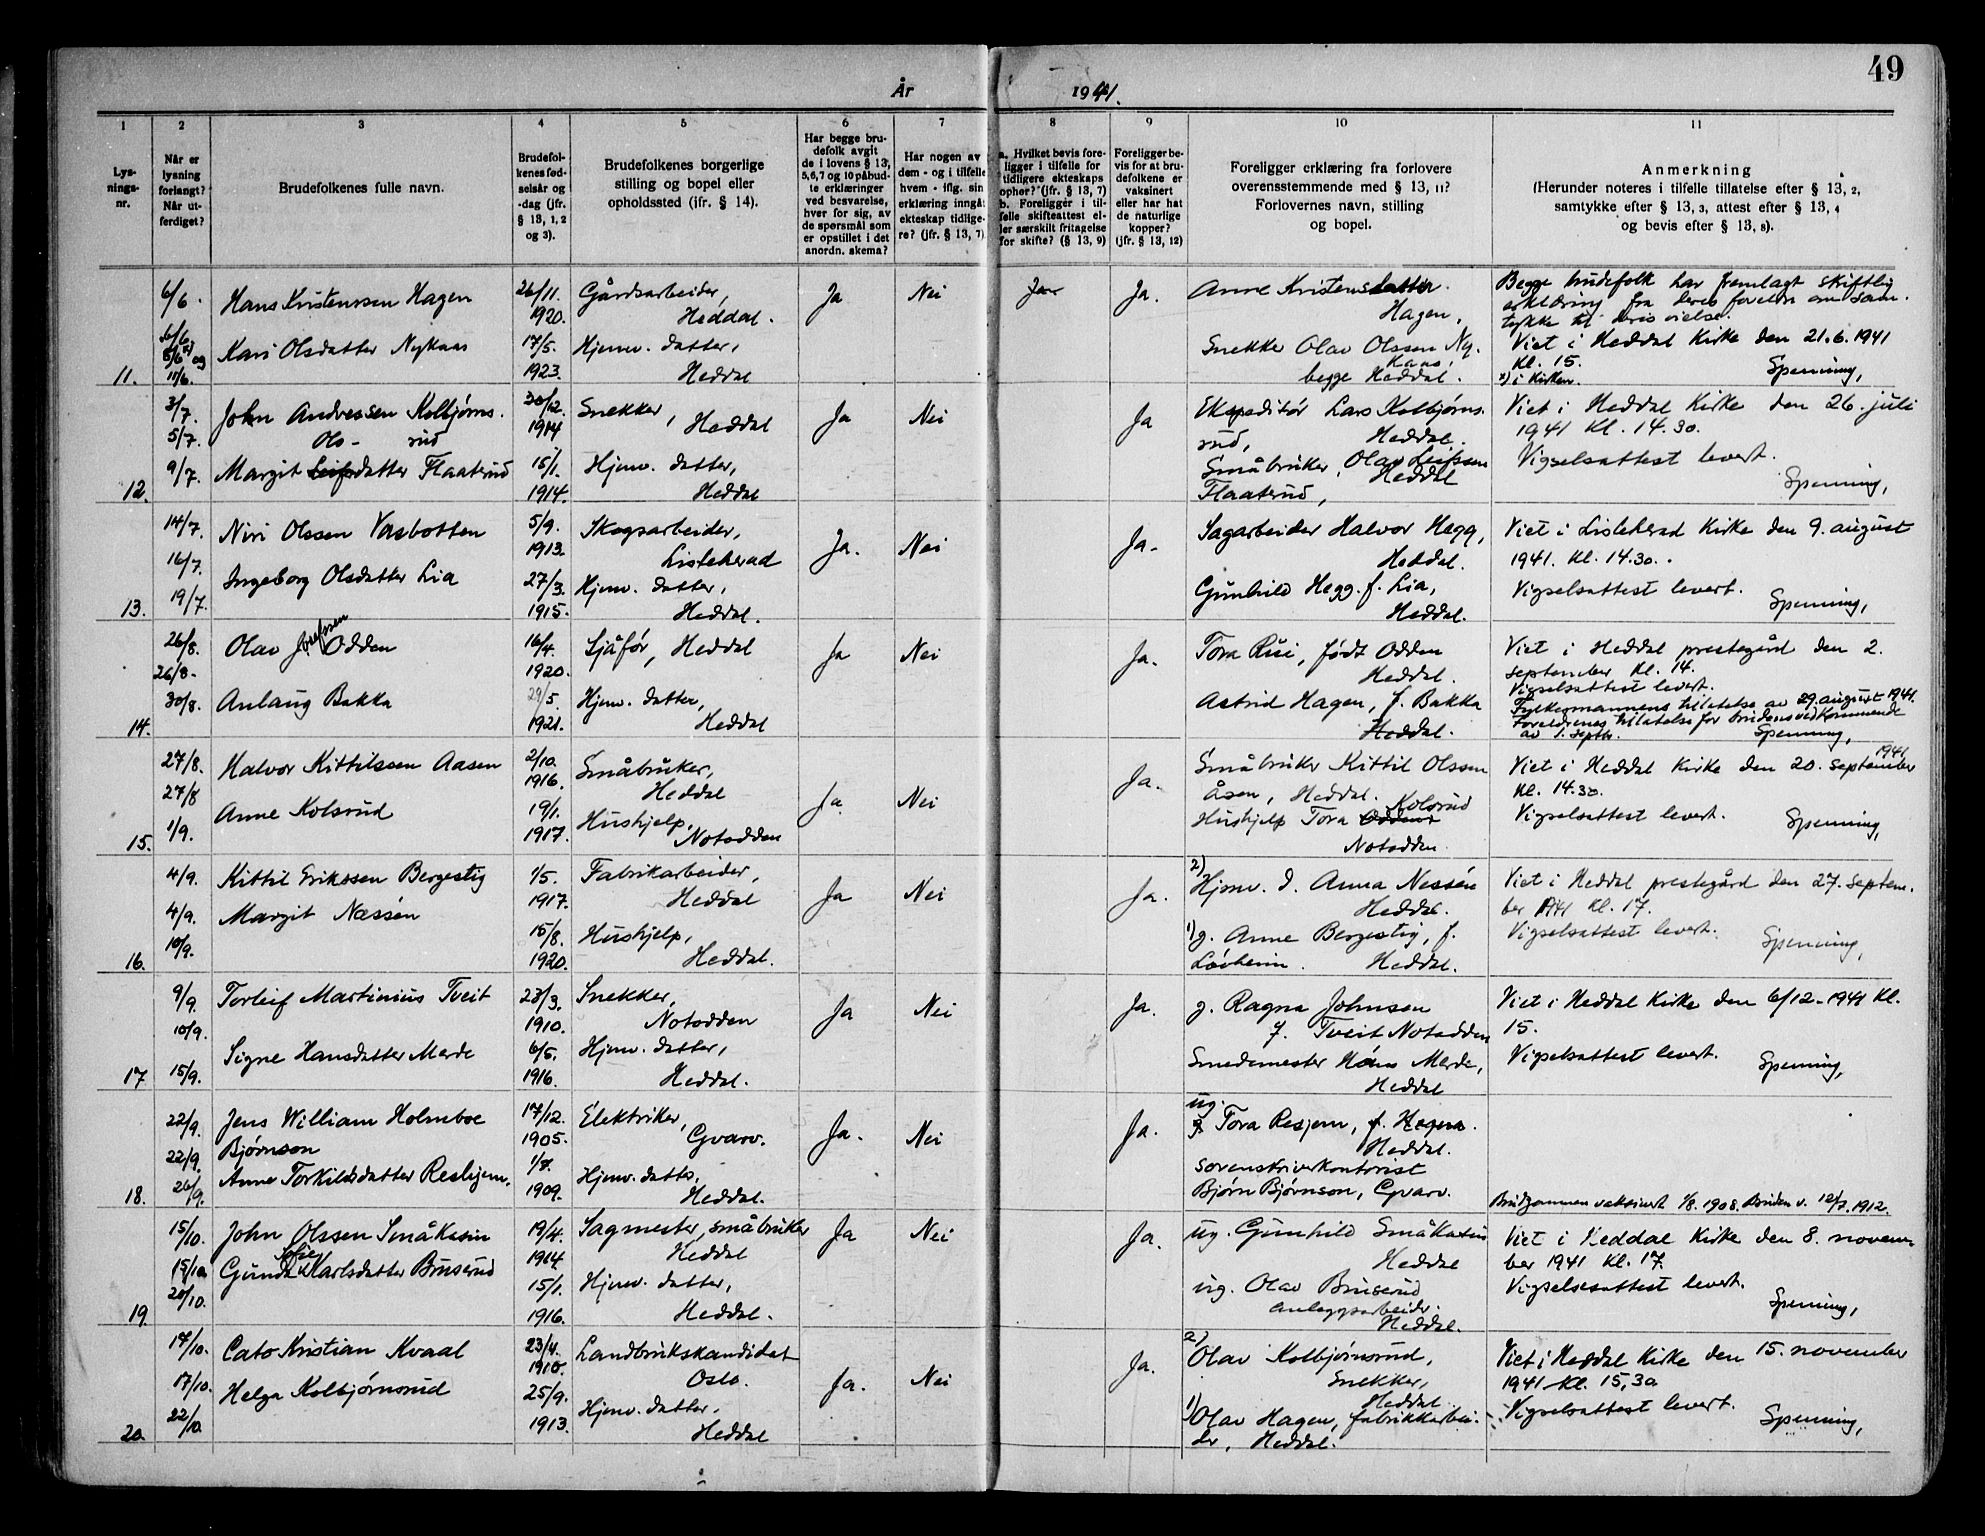 49
År 1941.
1 2 3 4 5 6 7 8 9 10 11
Lysnings-nr.
Når er lysning forlangt? Når utferdiget?
Brudefolkenes fulle navn.
Brudefolkenes fødselsår og -dag (jfr. § 13, 1, 2 og 3).
Brudefolkenes borgerlige stilling og bopel eller opholdssted (jfr. § 14).
Har begge brudefolk avgit de i lovens § 13, 5,6,7 og 10 påbudte erklæringer ved besvarelse, hver for sig, av de spørsmål som er opstillet i det anordn. skema?
Har nogen av dem - og i tilfelle hvem - iflg. sin erklæring inngåt ekteskap tidligere? (jfr. § 13, 7)
a. Hvilket bevis foreligger i tilfelle for tidligere ekteskaps ophør? (jfr. § 13, 7) b. Foreligger i tilfelle skifteattest eller særskilt fritagelse for skifte? (§ 13, 9)
Foreligger bevis for at brudefolkene er vaksinert eller har hat de naturlige kopper? (jfr. § 13, 12)
Foreligger erklæring fra forlovere overensstemmende med § 13, 11? Forlovernes navn, stilling og bopel.
Anmerkning (Herunder noteres i tilfelle tillatelse efter § 13, 2, samtykke efter § 13, 3, attest efter § 13, 4 og bevis efter § 13, 8).
11.
6/6.
6/6
11/6.
Hans Kristenssen Hagen
Kari Olsdatter Nykaas
26/11. 1920.
17/5. 1923.
Gårdsarbeider,
Heddal.
Hjemv. datter,
Heddal
Ja
Nei
Ja
Ja.
Anne Kristensdatter
Hagen,
Snekker Olav Olssen Ny-
kaas,
begge Heddal.
Begge brudefolk har fremlagt skriftlig
erklæring fra deres foreldre om sam-
tykke til deres vielse.
Viet i Heddal Kirke den 21.6.1941
Kl. 15.
x) i Kirken.
Spenning,
12.
3/7.
5/7.
9/7.
John Andressen Kolbjørns-
rud
Ols-
Margit Leifsdatter Flaaterud
30/12. 1914
15/1. 1914.
Snekker,
Heddal
Hjemv. datter,
Heddal
Ja
Nei
Ja
Ekspeditør Lars Kolbjørns-
rud,
Heddal.
Småbruker Olav Leifssen
Flaaterud,
Heddal
Viet i Heddal Kirke den 26. juli
1941 Kl. 14.30.
Vigselsattest levert.
Spenning,
13.
14/7.
16/7.
19/7.
Niri Olssen Vasbotten
Ingeborg Olsdatter Lia
5/9. 1913.
27/3. 1915.
Skogsarbeider,
Lisleherad
Hjemv. datter,
Heddal.
Ja.
Nei
Ja.
Sagarbeider Halvor Hegg,
Heddal.
Gunhild Hegg. f. Lia,
Heddal.
Viet i Lisleherad Kirke den 9. august
1941. Kl. 14.30.
Vigselsattest levert.
Spenning,
14.
26/8.
26/8.
30/8.
Olav Josefssen Odden
Anlaug Bakka
16/4. 1920.
29/5. 1921.
Sjåfør, Heddal
Hjemv. datter,
Heddal
Ja
Nei
Ja.
Tora Rui, født Odden
Heddal.
Astrid Hagen, f. Bakka
Heddal.
Viet i Heddal prestegård den 2.
september Kl. 14.
Vigselsattest levert.
Fylkesmannens tillatelse av 29. august 1941.
Foreldrenes tillatelse for brudens vedkommende
av 1. septb.
Spenning,
15.
27/8.
27/8
1/9.
Halvor Kittilssen Aasen
Anne Kolsrud
2/10. 1916.
19/1. 1917.
Småbruker,
Heddal
Hushjelp,
Notodden
Ja
Nei
Ja.
Småbruker Kittil Olssen
Åsen, Heddal.
Hushjelp Tora Odden Kolsrud
Notodden.
Viet i Heddal Kirke den 20. september 1941.
Kl. 14.30.
Vigselsattest levert.
Spenning,
16.
4/9.
4/9.
10/9.
Kittil Erikssen Bergestig
Margit Næssén
1/5. 1917.
15/8. 1920.
Fabrikarbeider,
Heddal
Hushjelp,
Heddal.
Ja
Nei
Ja.
2) Hjemv. d. Anna Nessén
Heddal.
1) g. Anne Bergestig, f.
Løvheim. Heddal.
Viet i Heddal prestegård den 27. septem-
ber 1941 Kl. 17.
Vigselsattest levert.
Spenning,
17
9/9.
10/9.
15/9.
Torleif Martinius Tveit
Signe Hansdatter Merde
23/3. 1910.
6/5. 1916.
Snekker,
Notodden
Hjemv. datter,
Heddal.
Ja
Nei
Ja.
g. Ragna Johnsen
f. Tveit Notodden
Smedemester Hans Merde,
Heddal
Viet i Heddal Kirke den 6/12-1941 Kl.
15.
Vigselsattest levert.
Spenning,
18.
22/9.
22/9.
26/9.
Jens William Holmboe
Bjørnson
Anne Torkildsdatter Reshjem.
17/12. 1905.
1909.
Elektriker,
Gvarv.
Hjemv. datter,
Heddal.
Ja.
Nei
Ja.
ug.
Tora Resjem, f. Hegna.
Heddal.
Sorenskriverkontorist
Bjørn Bjørnson, Gvarv.
Brudgommen vaksinert 1/8. 1908. Bruden v. 12/7. 1912.
19.
15/10.
15/10
20/10.
John Olssen Småkasin
Gunda Sofie Karlsdatter Bruserud
19/4. 1914.
15/1. 1916.
Sagmester, småbruker
Heddal
Hjemv. datter,
Heddal.
Ja
Nei
Ja.
ug. Gunhild Småkasin
Heddal
ug. Olav Bruserud
anleggsarbeider.
Heddal.
Viet i Heddal Kirke den 8. novem-
ber 1941 Kl. 17.
Vigselsesattest levert.
Spenning,
20.
17/10.
17/10.
22/10
Cato Kristian Kvaal
Helga Kolbjørnsrud
23/4. 1910.
25/9. 1913.
Landbrukskandidat
Oslo.
Hjemv. datter,
Heddal
Ja.
Nei
Ja.
2) Olav Kolbjørnsrud,
Snekker,
Heddal
1) Olav Hagen, fabrikkarbei-
der, Heddal.
Viet i Heddal Kirke den 15. november
1941 Kl. 15,30
Vigselsattest levert.
Spenning,